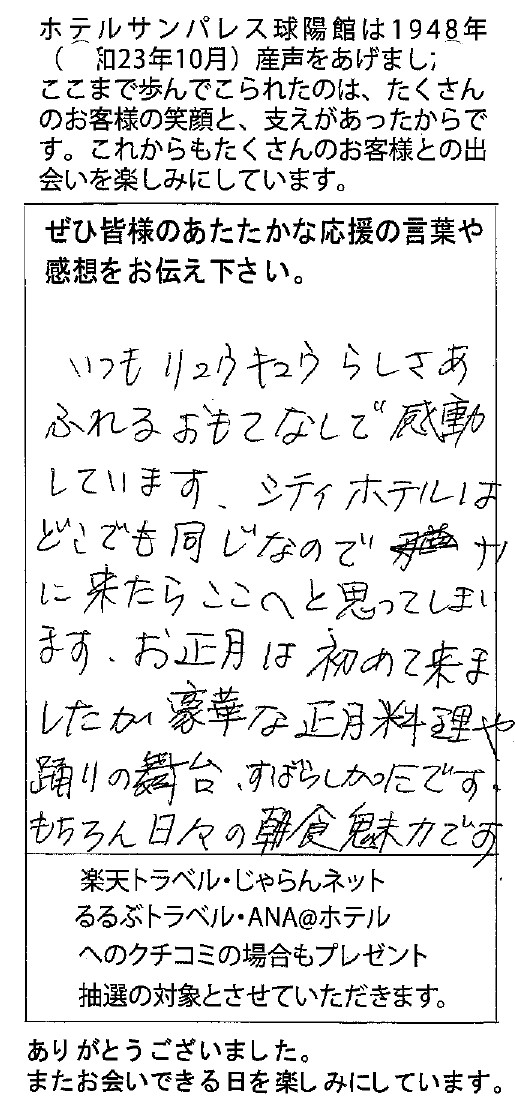 ホテルサンパレス球陽館は1948年
(和23年10月)産声をあげまし
ここまで歩んでこられたのは、たくさん
のお客様の笑顔と、支えがあったからで
す。これからもたくさんのお客様との出
会いを楽しみにしています。
ぜひ皆様のあたたかな応援の言葉や
感想をお伝え下さい。
いつもリュウキュウらしさあ
ふれるおもてなしで感動
しています、シティホテルは
どこでも同じなので
に来たらここへと思ってしまい
ます、お正月は初めて来ま
したが豪華な正月料理や
踊りの舞台、すばらしかったです。
もちろん日々の朝食魅力です
楽天トラベル・じゃらんネット
るるぶトラベル・ANA@ホテル
へのクチコミの場合もプレゼント
抽選の対象とさせていただきます。
ありがとうございました。
またお会いできる日を楽しみにしています。